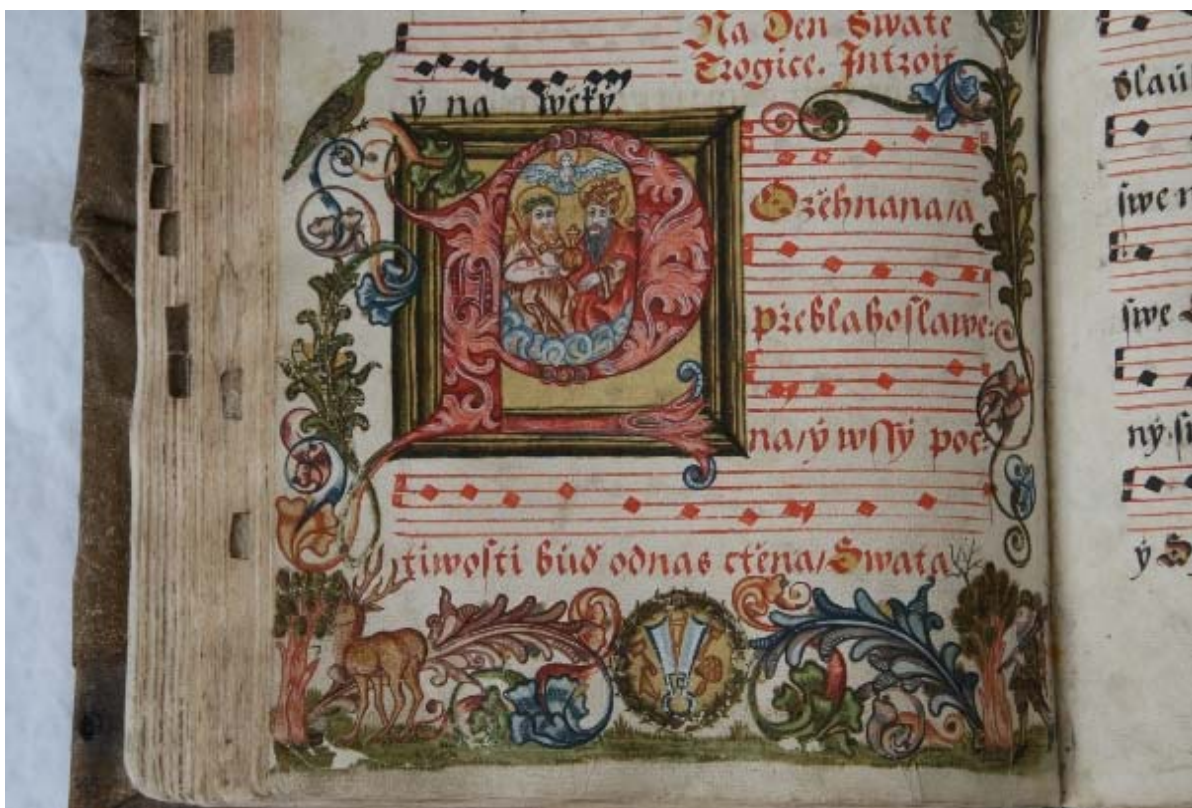 Na Den Swate
Trogice. Jntroit
ý na wěky.
Ožěhnana/a
přeblahoslawe:
na/ý wssý poc:
tiwosti bud odnas ctěna/Swata
dlaů
swe
swe
ný.
ý